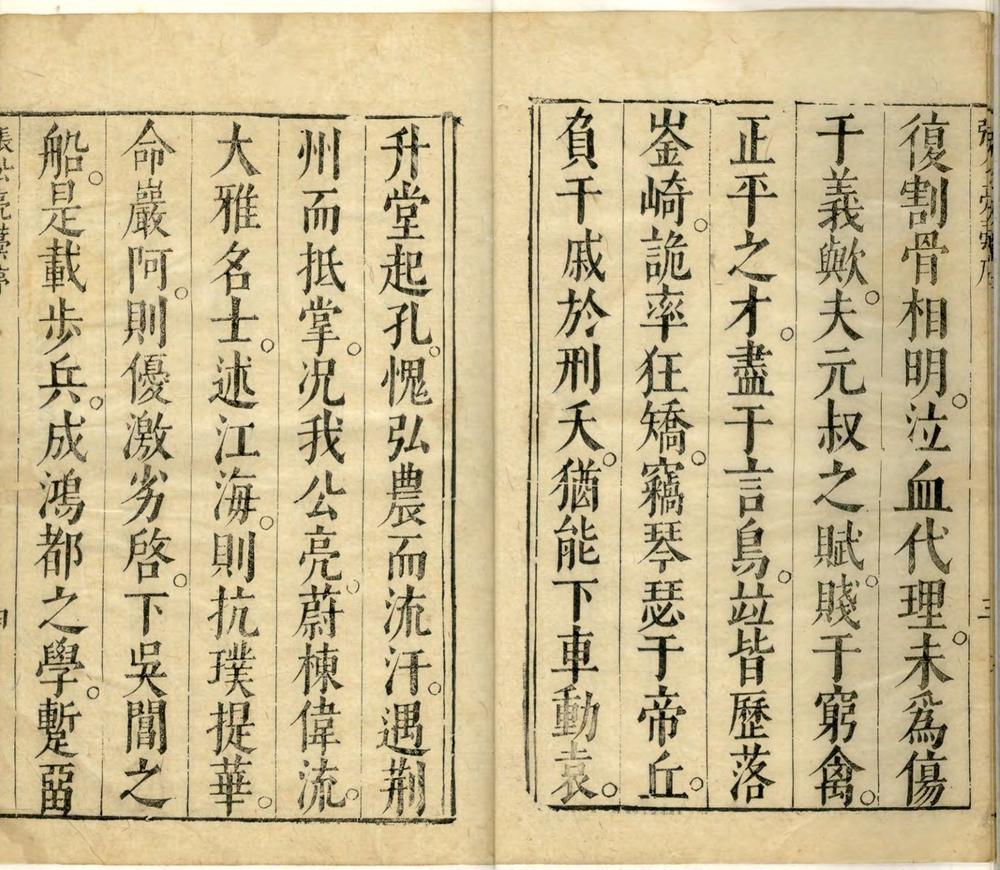 復割骨相明。泣血代理。未爲傷
千義歟。夫元叔之賦。賤于窮禽。
正平之才。盡于言鳥。竝皆歷落
崟崎。詭率狂矯。竊琴瑟于帝丘。
負干戚於刑夭。猶能下車動袁。
升堂起孔。愧弘農而流汗。遇荆
州而抵掌。况我公亮。蔚棟偉流。
大雅名士。述江海。則抗璞提華。
命巖阿。則優激劣啓。下吳閶之
船。是載步兵。成鴻都之學。蹔畱